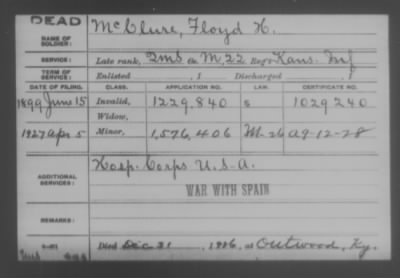 DEAD
NAME OF SOLDIER: McClure, Floyd H.
SERVICE: Late rank, Co. M, 22 Reg't Kans. Inf
TERM OF SERVICE: Enlisted , 1 Discharged , 1
DATE OF FILING. CLASS. APPLICATION NO. LAW. CERTIFICATE NO.
1899 June 15 Invalid, 1229.840 1029240
Widow,
1927 Apr 5 Minor, 1,576,406 A9-12-28
ADDITIONAL SERVICES: Hosp. Corps U.S.A.
WAR WITH SPAIN
REMARKS:
Died Dec 31 , 1926, at Outwood, Ky.